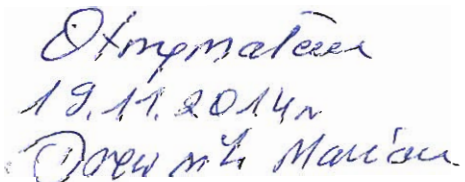 Otrzymałem
19.11.2014r
Marian